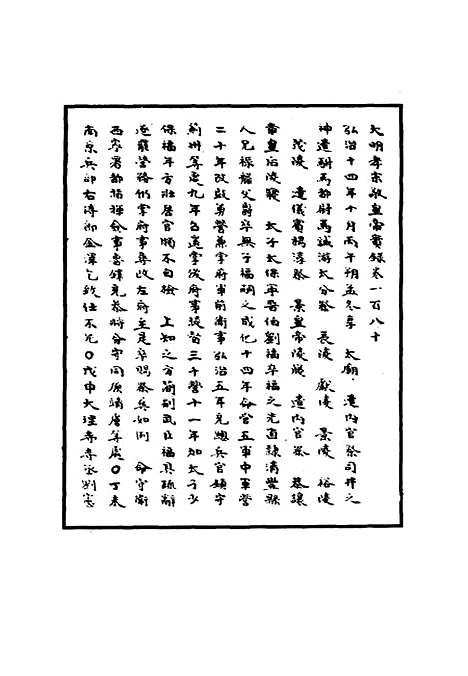 大明孝宗敬皇帝實錄卷一百八十
弘治十四年十月丙午朔孟冬享　太廟　遣內官祭司井之
神遣駙馬都尉馬誠游太分祭　長陵　獻陵　景陵　裕陵
茂陵　遣儀賓楊淳祭　景皇帝陵寢　遣內官祭　恭讓
章皇后陵寢　太子太保寧晉伯劉福卒福之先直隸清豐縣
人兄祿襲父爵卒無子福嗣之成化十四年命管五軍中軍營
二十年改鼓勇營兼掌府軍前衛事弘治五年充總兵官鎮守
薊州等處九年召還掌後府事提督三千營十一年加太子少
保福年方壯居官頗不自檢　上知之方簡別武臣福具疏辭
遂罷營務仍掌府事尋改左府至是卒賜祭葬如例　命守衛
西寧署都指揮僉事魯鏞充恭將分守同原靖虜等處○丁未
南京兵部右侍郎金澤乞致仕不允○戊申大理寺寺丞劉憲